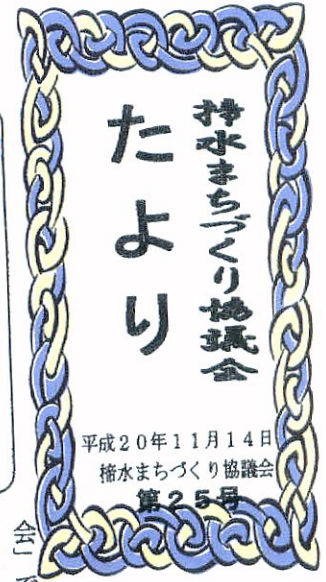 揥水まちづくり協議会
たより
平成20年11月14日
揥水まちづくり協議会
第25号
会」で